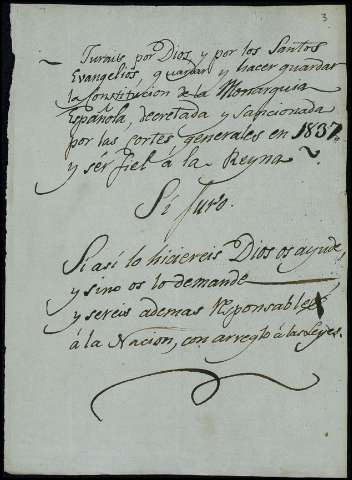 3
Jurais por Dios, y por los Santos
Evangelios, guardar y hacer guardar
la Constitucion de la Monarquia
Española, decretada y sancionada
por las cortes generales en 1837.
y sér fiel á la Reyna
Sí juro.
Si así lo hiciereis Dios os ayude,
y sino os lo demande
y sereis ademas responsables
á la Nacion, con arreglo á las Leyes.